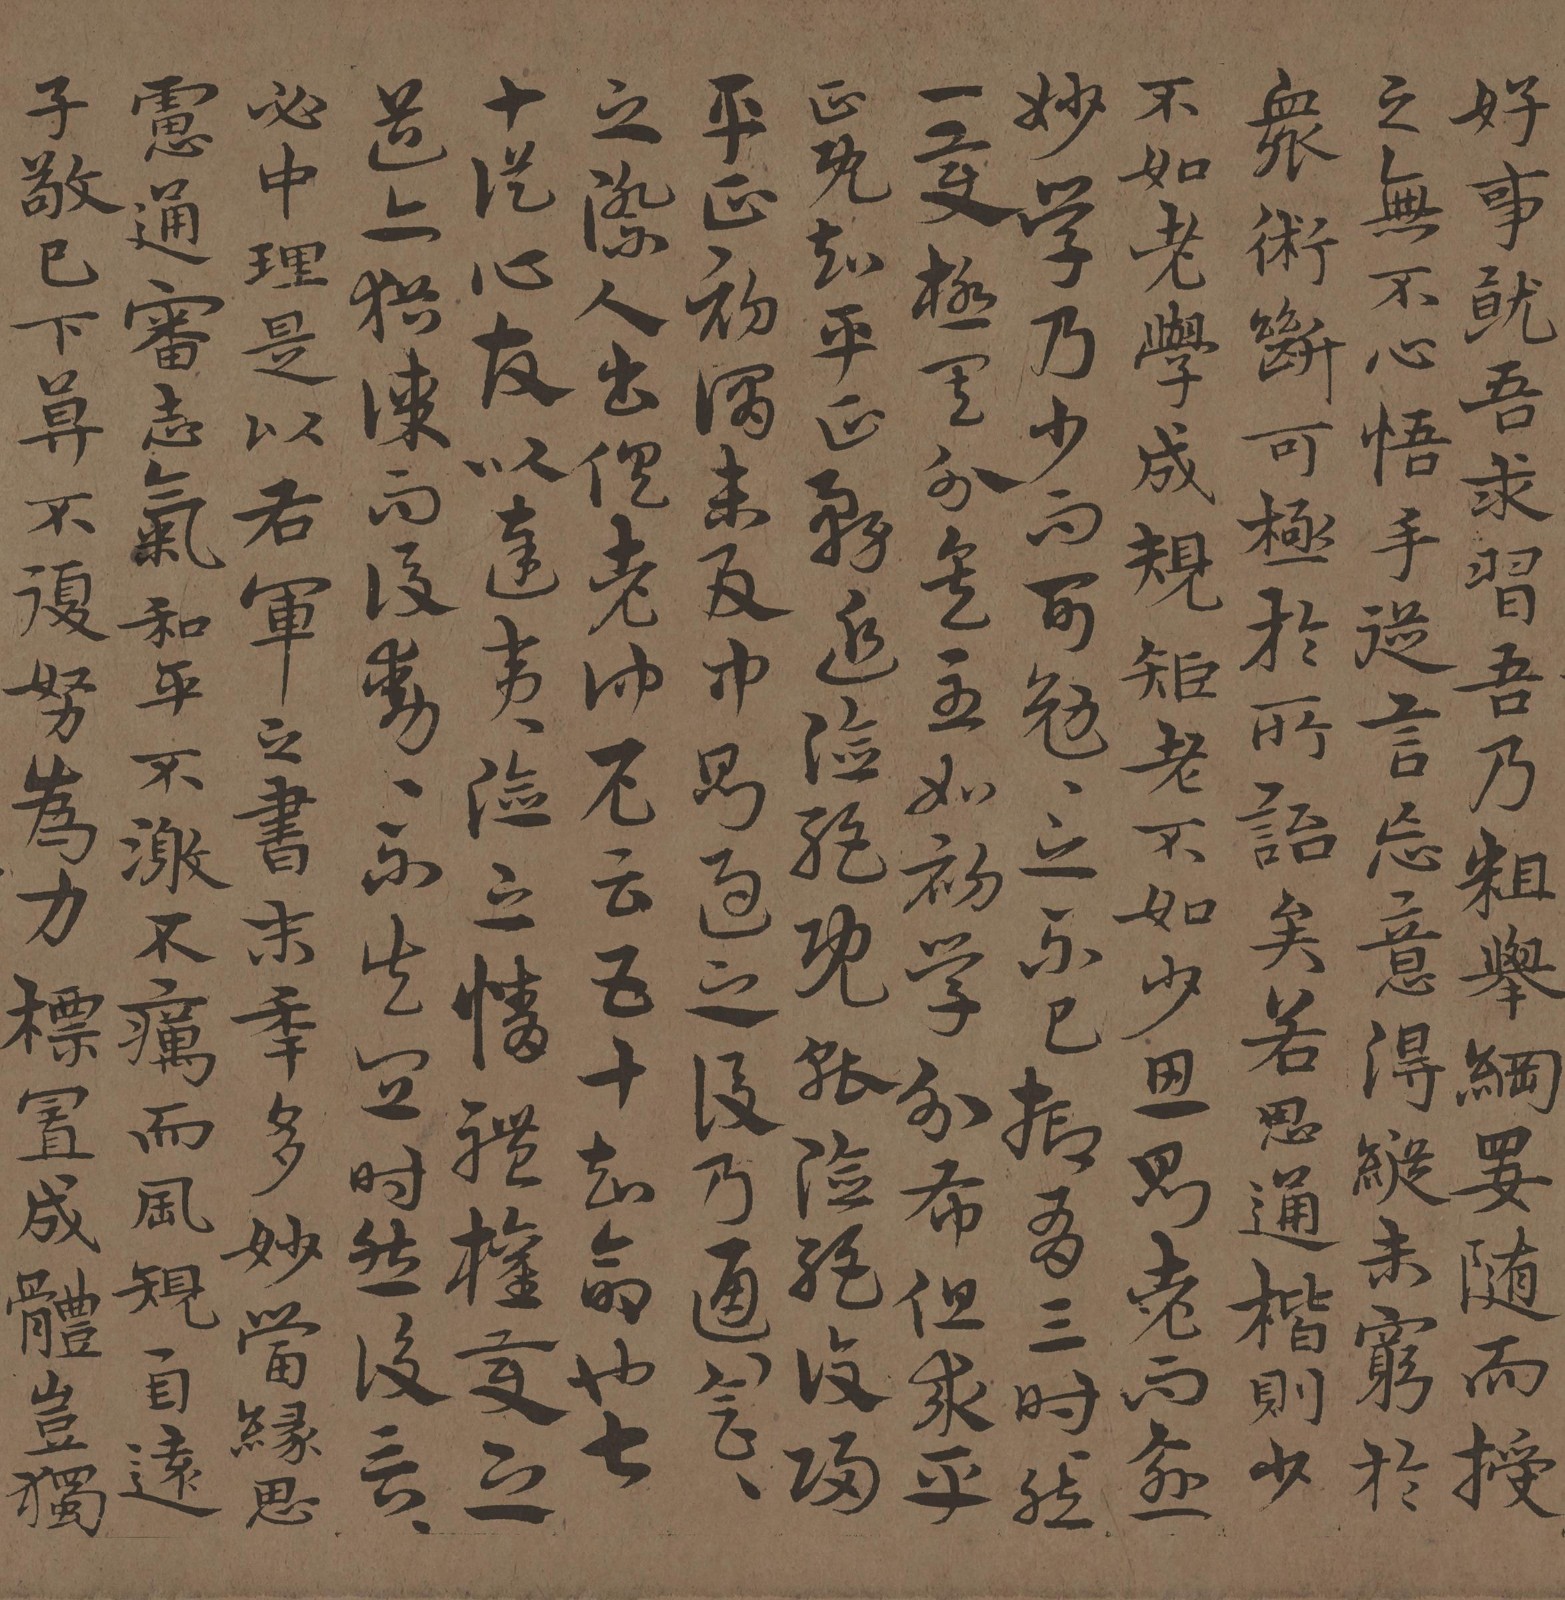 好事就吾求習吾乃粗舉綱要随而授
之無不心悟手從言忘意得縱未窮於
衆術斷可極於所詣矣若思通楷則少
不如老學成規矩老不如少思思則老而愈
妙学乃少而可勉〻之不已抑有三时然
一变極其分矣至如初学分布但求平
正既知平正務追險絶既能險絶復歸
平正初謂未及中則過之後乃通會〻
之際人書俱老仲尼云五十知命也七
十從心故以達夷〻險之情體權变之
道亦猶謀而後動〻不失宜时然後言〻
必中理是以右軍之書末年多妙當緣思
慮通審志氣和平不激不厲而風規自遠
子敬已下莫不努為力標置成體豈獨